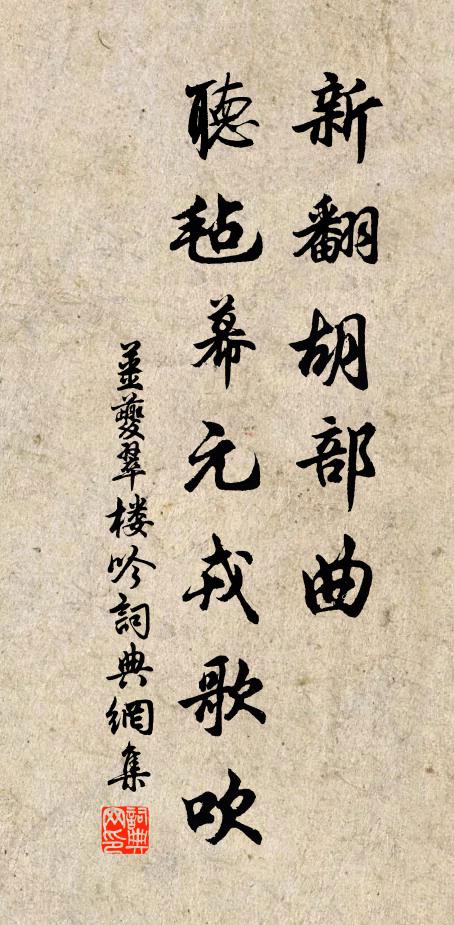 新翻胡部曲
聽毡幕元戎歌吹
姜夔翠楼吟詞典網集
詞典网印